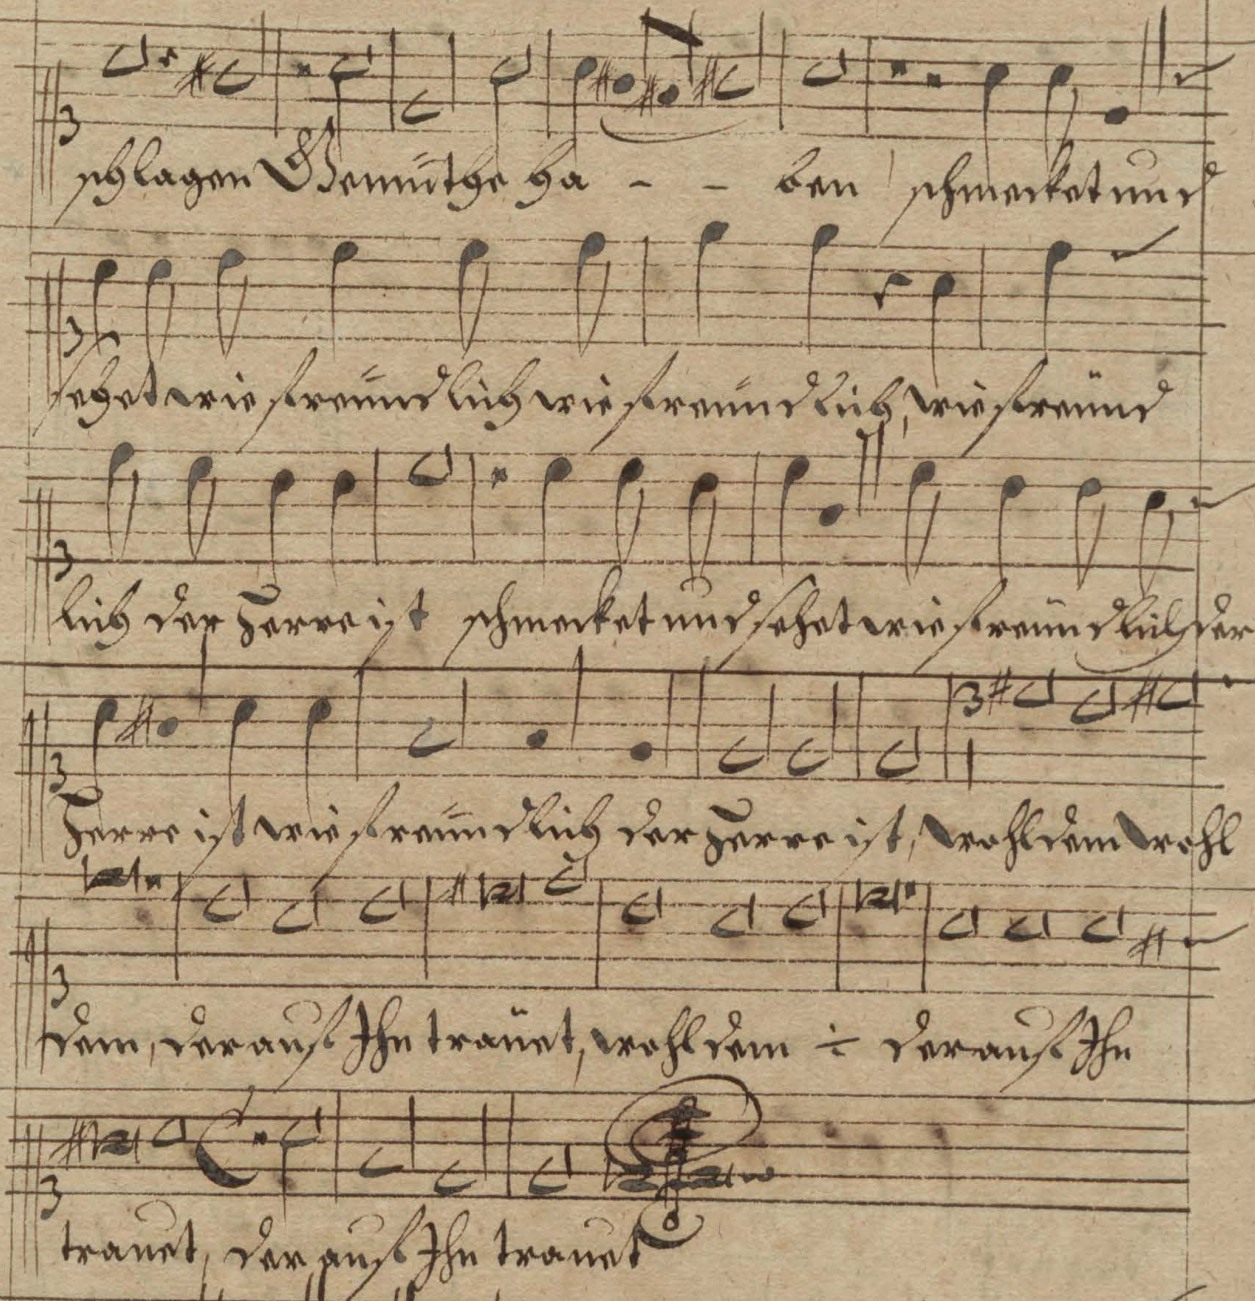 schlagen Gemüthe ha - - ben schmecket und
sehet wie freündlich wie freündlich, wie freünd
lich der Herre ist schmecket und sehet wie freündlich der
Herre ist wie freündlich der Herre ist, wohl dem wohl
dem, der auf Ihn traüet, wohl dem ÷ der auf Ihn
trauet, der auf Ihn trauet